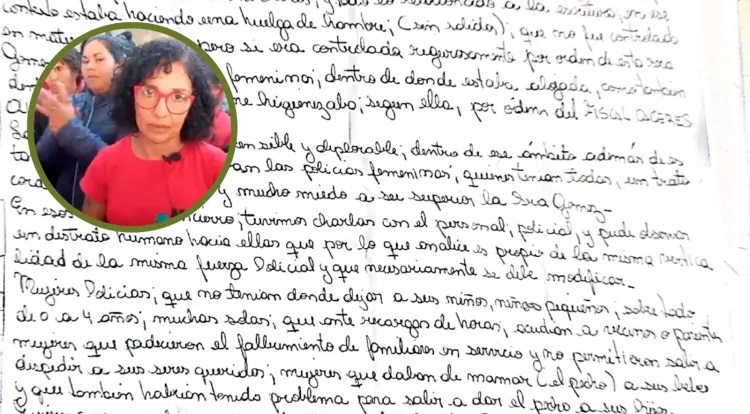 a la escritura, en ese
estaba haciendo una huelga de hambre; (sin solidos); que no fue controlado
pero si era controlada rigurosamente por orden de esta sra
femeninos; dentro de donde estaba alojada, como tambien
me higienizaba; segun ella, por orden del FISCAL CACERES
y deplorable; dentro de ese ámbito además de
las policias femeninas; quienes tenian todas, un trato
y mucho miedo a su superior la Sra Gomez-
En esos tuvimos charlas con el personal, policial, y pude
un destrato humano hacia ellas que por lo que analice es propio de la misma
lidad de la misma fuerza Policial y que necesariamente se debe modificar-
Mujeres Policias; que no tenian donde dejar a sus niños, niños pequeños; sobre todo
de 0 a 4 años; muchas solas; que ante recargas de horas; acudian a vecinos o parientes
mujeres que padecieron el fallecimiento de familiares en servicio y no permitieron salir a
despedir a sus seres queridos; mujeres que daban de mamar (el pecho) a sus bebes
y que tambien habrian tenido problema para salir a dar el pecho a sus hijos